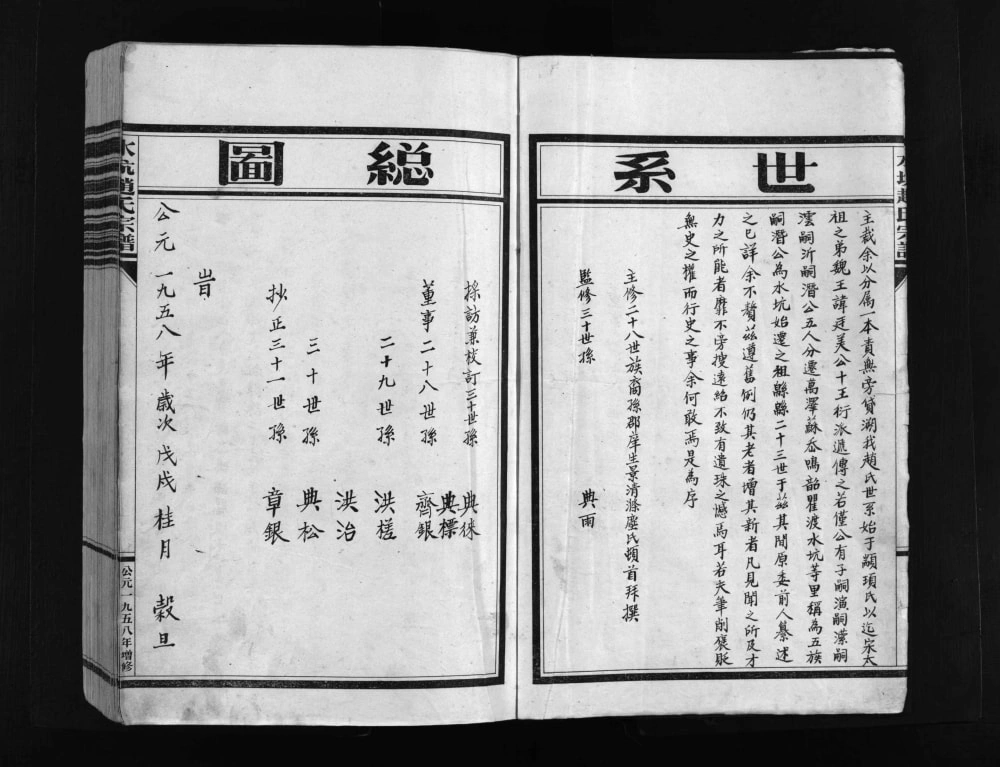 世系
主裁余以分属一本責無旁貸溯我趙氏世系始于顓頊氏以迄宋太
祖之弟魏王諱廷美公十王衍派遞傳之若僅公有子嗣演嗣濴嗣
澐嗣沂嗣潛公五人分遷高澤蘇岙鳴韶瞿渡水坑等里稱為五族
嗣潛公為水坑始遷之祖緜緜二十三世于茲其間原委前人纂述
之已詳余不贅茲遵舊例仍其老者增其新者凡見聞之所及才
力之所能者靡不旁搜遠紹不致有遺珠之憾焉耳若夫筆削褒貶
無史之權而行史之事余何敢焉是為序
主修二十八世族裔孫郡庠生景清滌塵氏頓首拜撰
監修三十世孫 典雨
水坑趙氏宗譜
總圖
採訪兼校訂三十世孫 典徠
典標
董事二十八世孫 齊銀
二十九世孫 洪槎
洪治
三十世孫 典松
抄正三十一世孫 章銀
旹
公元一九五八年歲次戊戌桂月 穀旦
水坑趙氏宗譜
公元一九五八年增修